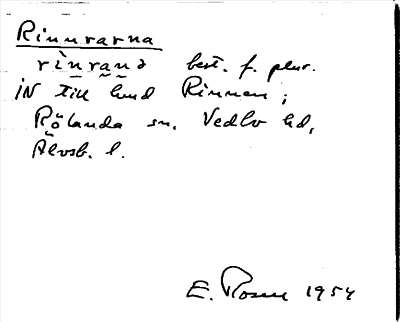 Rinnrarna
rìnrana best. f. plur.
IN till hmd Rinnen;
Rölanda sn. Vedbo hd,
Älvsb. l.
E. Rosen 1954